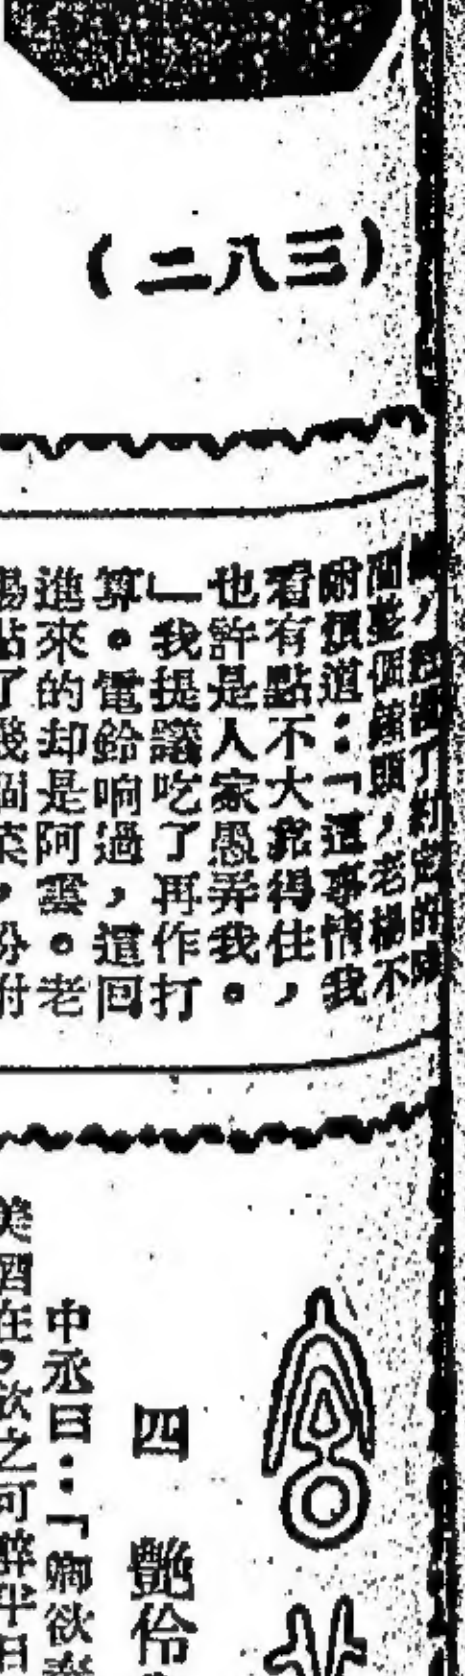 (二八三)
了約定的時
間整個鐘頭,老楊不
耐煩道:「這事情我
看有點不大靠得住,
也許是人家愚弄我。
」我提議吃了再作打
算。電鈴响過,這回
進來的却是阿雲。老
楊點了幾個菜,吩咐
四 艷伶
中丞曰:「
美酒在,飲之可醉半日